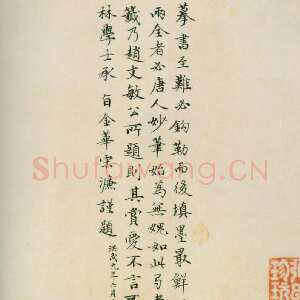 摹書至難必鈎勒而後填墨最鮮
兩全者必唐人妙筆始為無媿如此弓者
籤乃趙文敏公所題則其賞愛不言可
林學士承旨金華宋濂謹題
洪武九年六月
Shufawang.CN